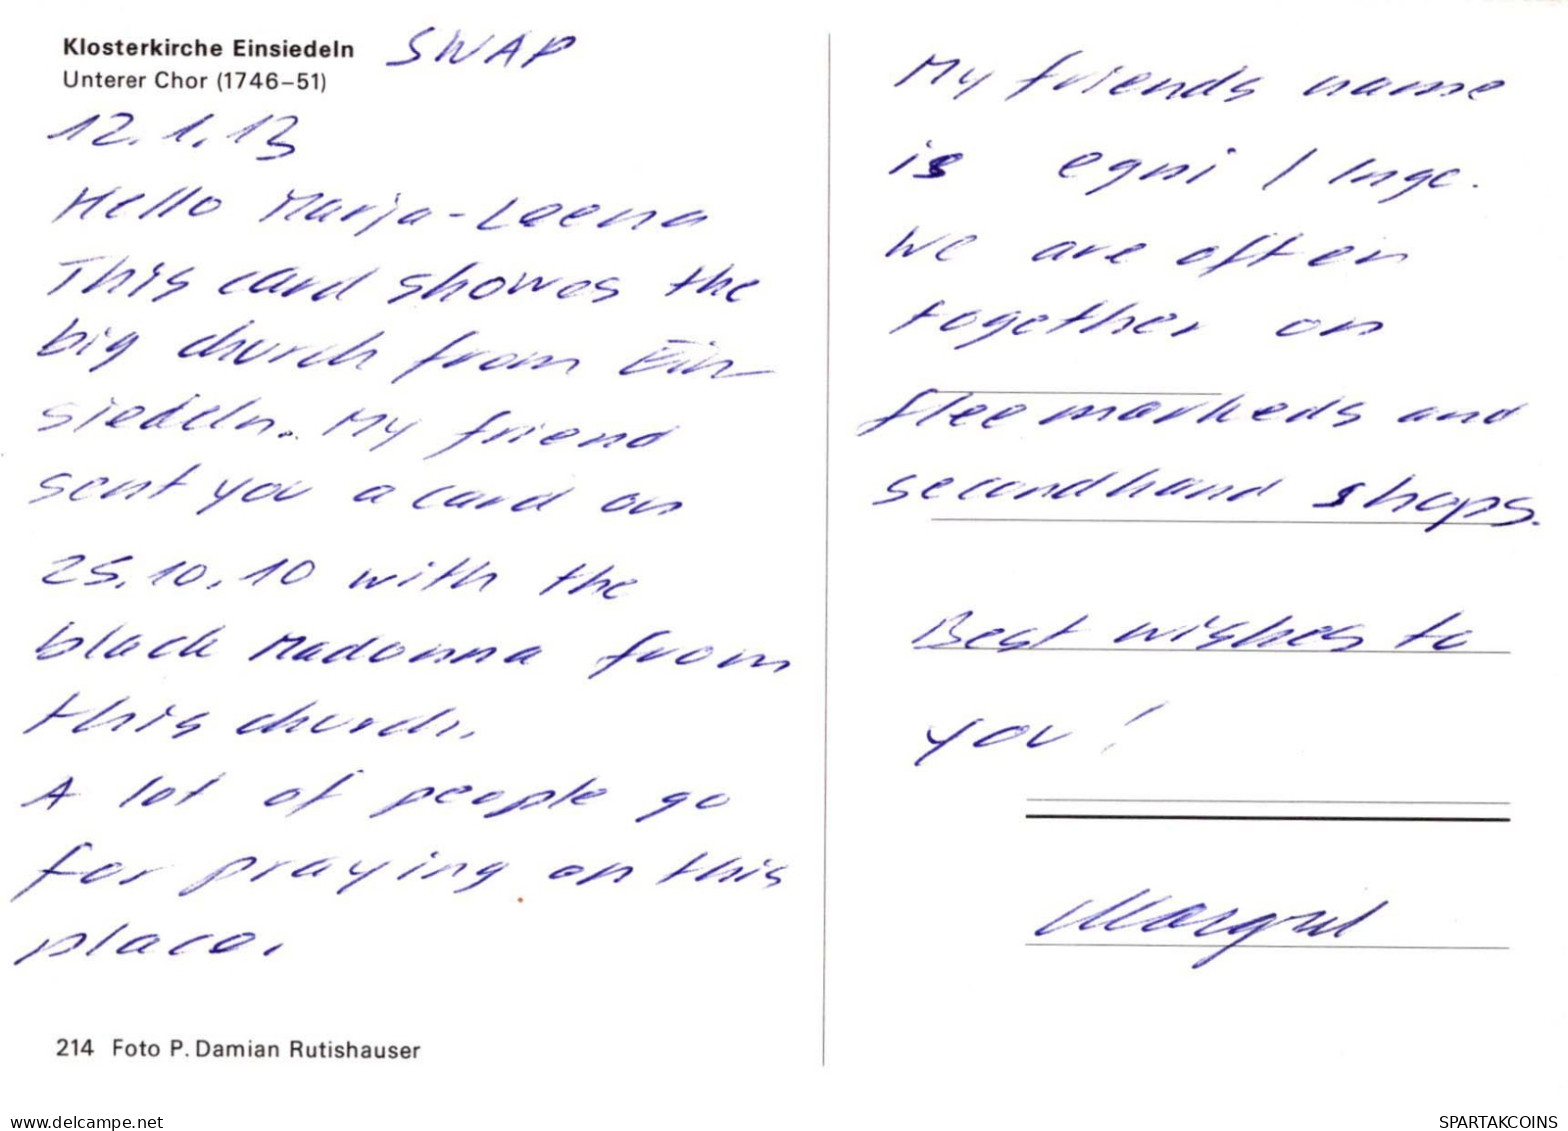 Klosterkirche Einsiedeln SWAP
Unterer Chor (1746–51)
12.1.13
Hello Marja-Leena
This card showes the
big church from Ein
siedeln. My friend
sent you a card on
25.10.10 with the
black Madonna from
this church.
A lot of people go
for praying on this
place.
214 Foto P. Damian Rutishauser
My friends name
is egni / Inge.
We are often
together on
flee markeds and
secondhand shops.
Best wishes to
you!
Margrit
www.delcampe.net
SPARTAKCOINS